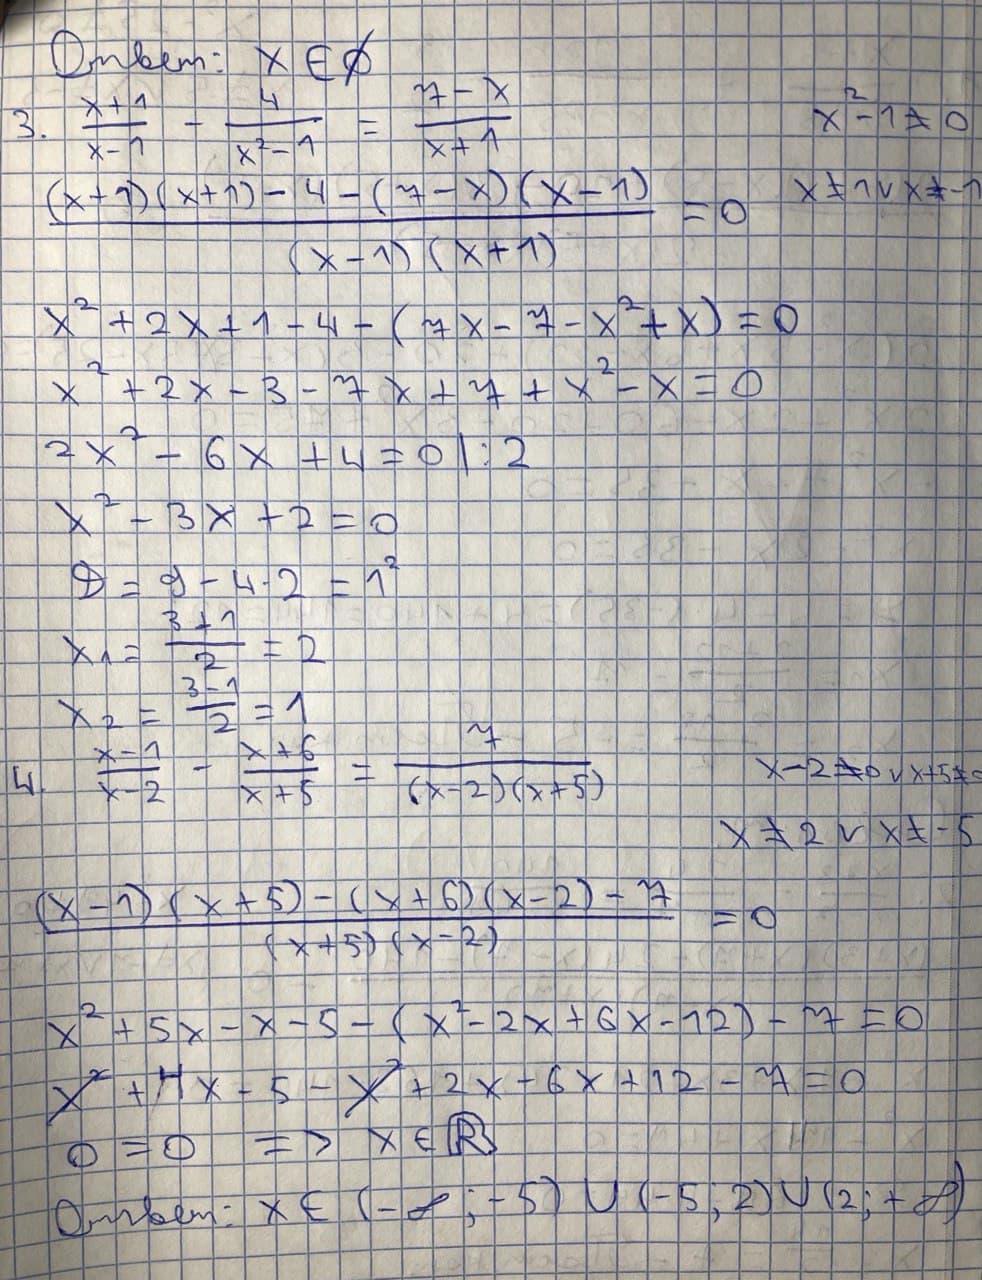 Ответ: x ∈ ∅
3. (x+1)/(x-1) - 4/(x²-1) = (7-x)/(x+1) x²-1≠0
((x+1)(x+1)-4-(7-x)(x-1))/((x-1)(x+1)) = 0 x≠1 v x≠-1
x²+2x+1-4-(7x-7-x²+x)=0
x²+2x-3-7x+7+x²-x=0
2x²-6x+4=0|:2
x²-3x+2=0
D=9-4·2=1²
x₁=(3+1)/2=2
x₂=(3-1)/2=1
4. (x-1)/(x-2) - (x+6)/(x+5) = 7/((x-2)(x+5)) x-2≠0 v x+5≠0
x≠2 v x≠-5
((x-1)(x+5)-(x+6)(x-2)-7)/((x+5)(x-2)) = 0
x²+5x-x-5-(x²-2x+6x-12)-7=0
x²+4x-5-x²+2x-6x+12-7=0
0=0 => x∈ℝ
Ответ: x∈(-∞;-5)∪(-5;2)∪(2;+∞)